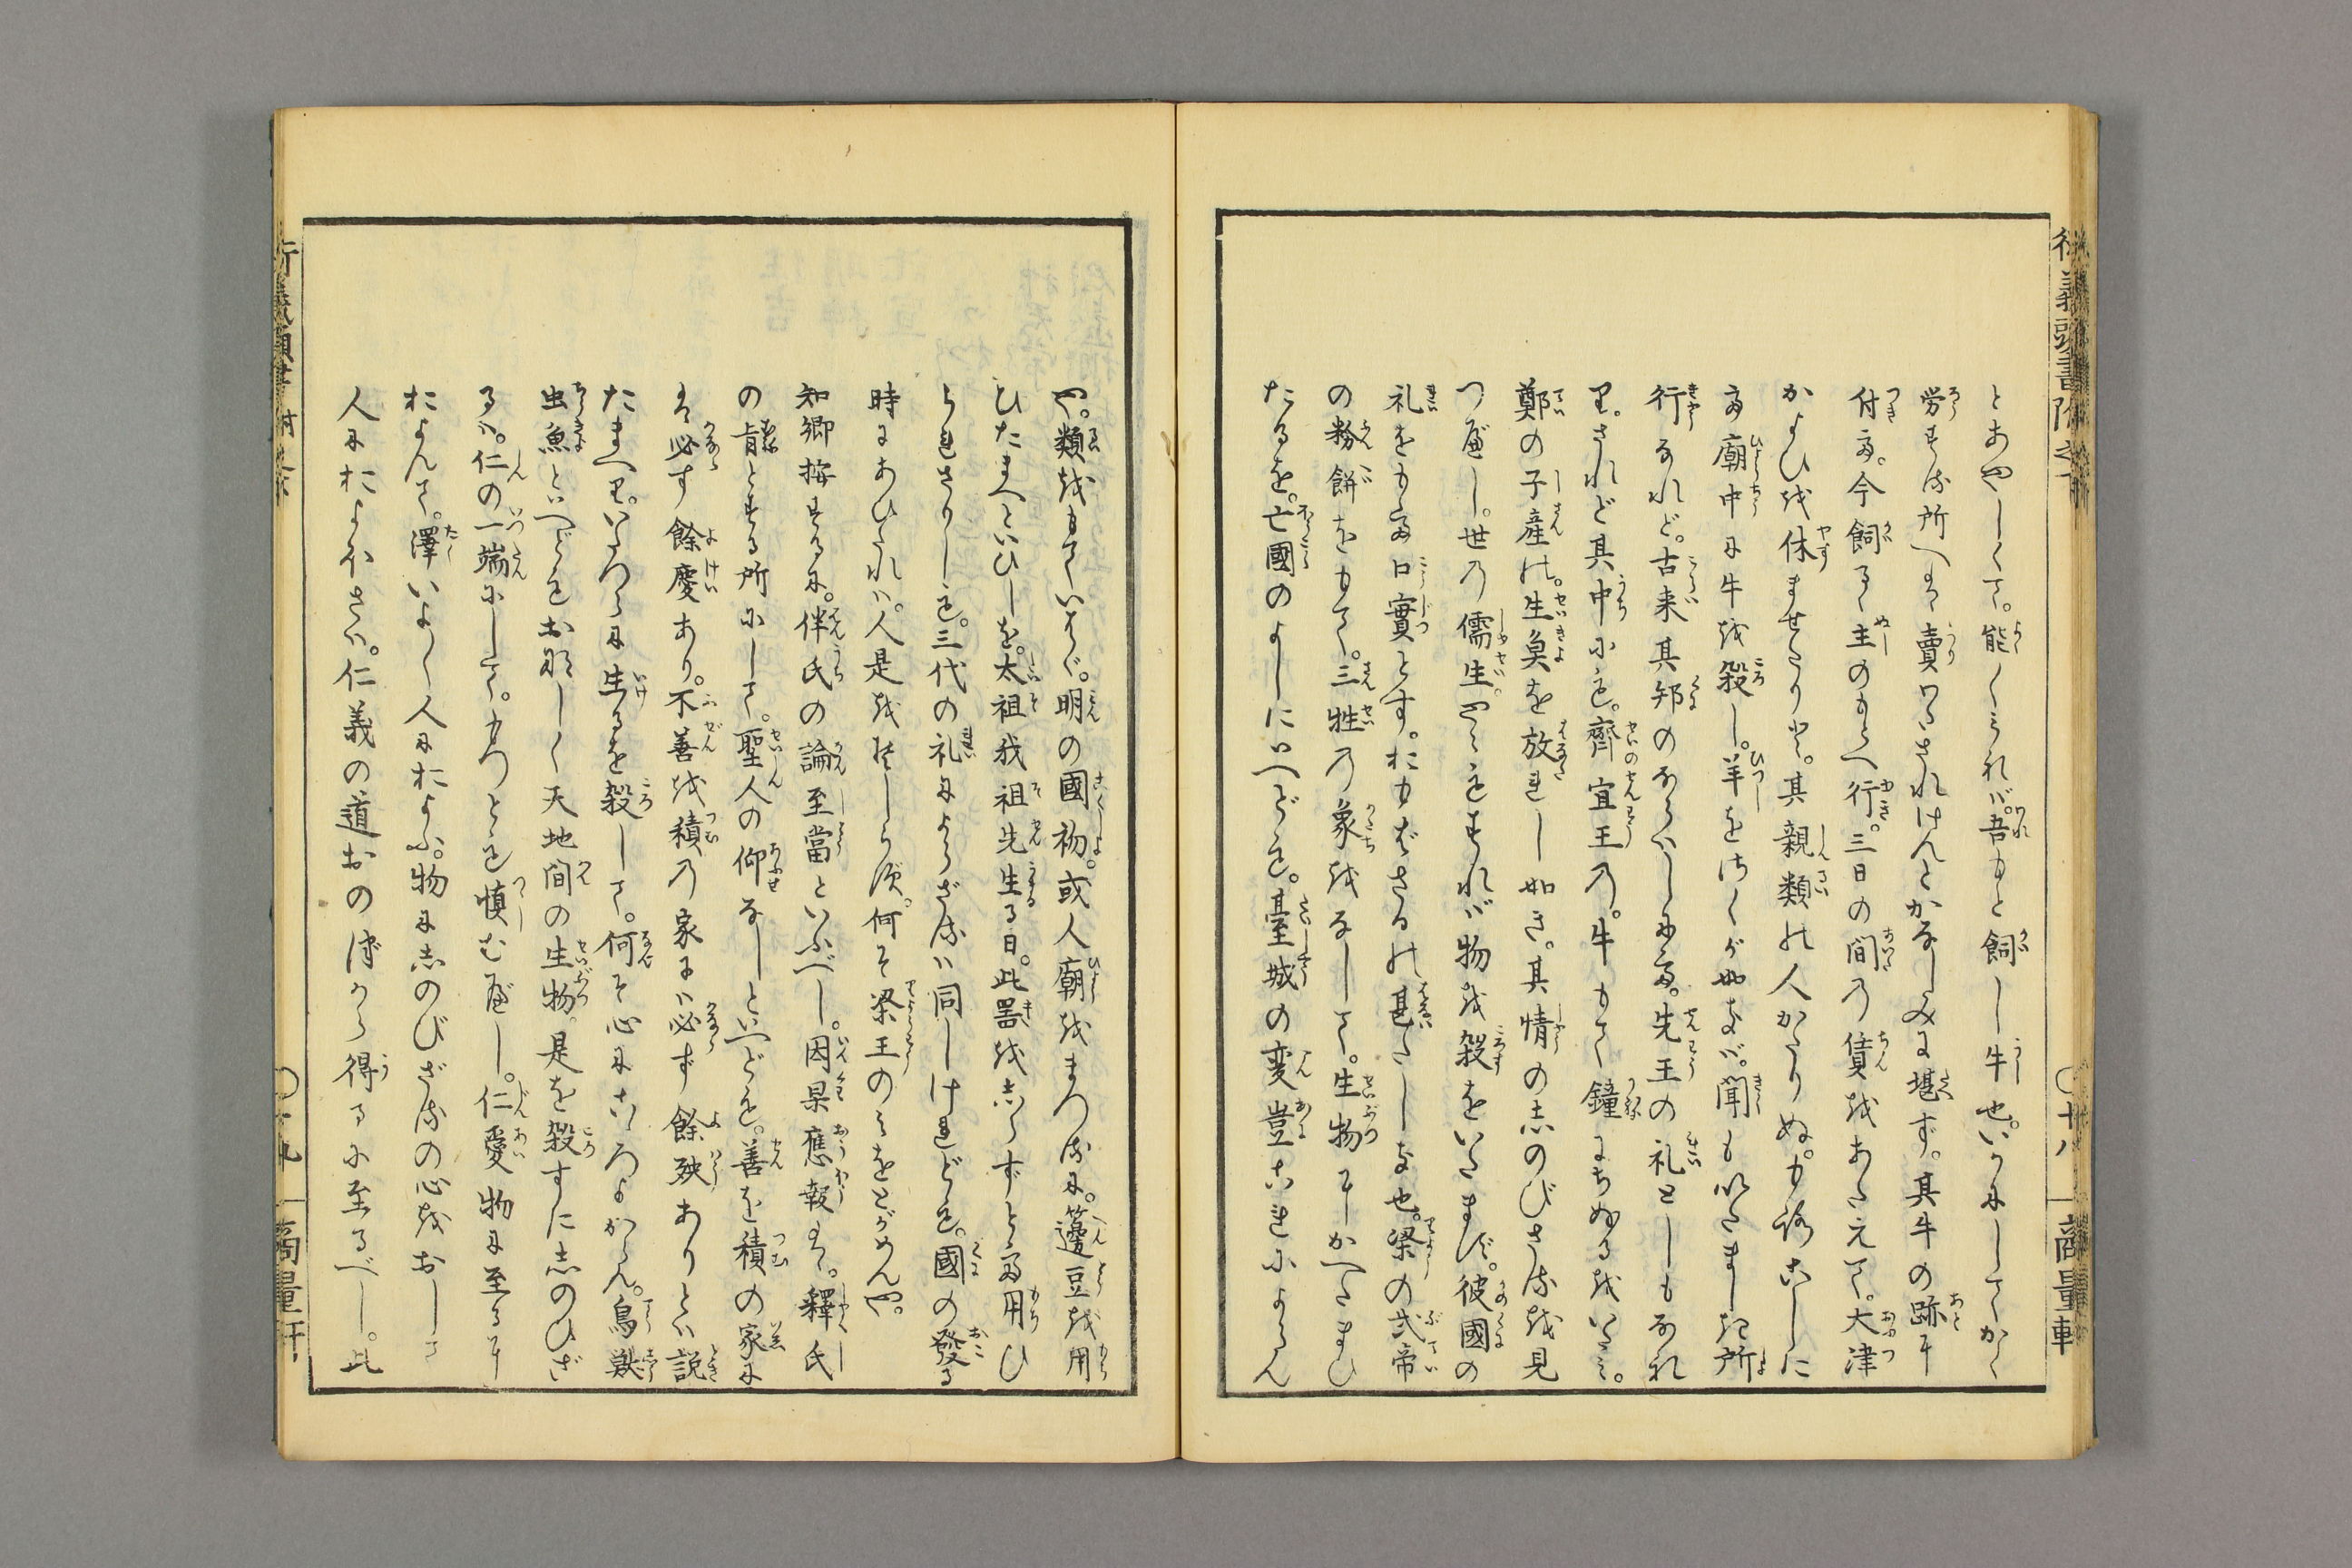 とあやしくて。能〱みれバ。吾もと飼し牛也。いかにしてかく
労する所へは賣わたされけんとかなしみに堪ず。其牛の跡に
付て。今飼る主のもとへ行。三日の間の賃をあたえて。大津
かよひを休ませたりと。其親類の人かたりぬ。もろこしに
て廟中に牛を殺し。羊をほふるが如きバ。聞もいたましき所
行なれど。古来其邦のならハしにて。先王の礼としもあれ
り。されど其中にも。齊宣王の。牛もて鐘にちぬるをいミ。
鄭の子産の。生魚を放れし如き。其情の志のびざるを見
つべし。世の儒生。やゝもすれバ物を殺をいたまず。彼國の
礼をもて口實とす。おもはざるの甚しき也。梁の武帝
の粉餅をもて。三牲の象をなして。生物にかへたまひ
たるを。亡國のよしにいへども。臺城の変豈これによらん
や。類をもていはゞ。明の國初。或人廟をまつるに。籩豆を用
ひたまへといひしを。太祖我祖先生る日。此噐を志らずとて用ひ
られざりしも。三代の礼によらざるハ同しけれども。國の發る
時にあひたれハ。人是をそしらず。何そ梁王のみをとがめんや。
知郷按するに。伴氏の論至當といふべし。因果應報は。釋氏
の旨とする所にして。聖人の仰なしといへども。善を積の家に
は必す餘慶あり。不善を積の家にハ必ず餘殃ありとハ説
たまへり。いたつらに生るを殺して。何そ心にこゝろよからん。鳥獣
虫魚といへどもおなしく天地間の生物。是を殺すに志のひざ
るハ。仁の一端にして。もつとも慎むべし。仁愛物に至るに
およんて。澤いよ〱人におよふ。物に志のびざるの心をおして
人におよほさハ。仁義の道おのづから得るに至るべし。此
衍義頭書附之下
○十八
商量軒